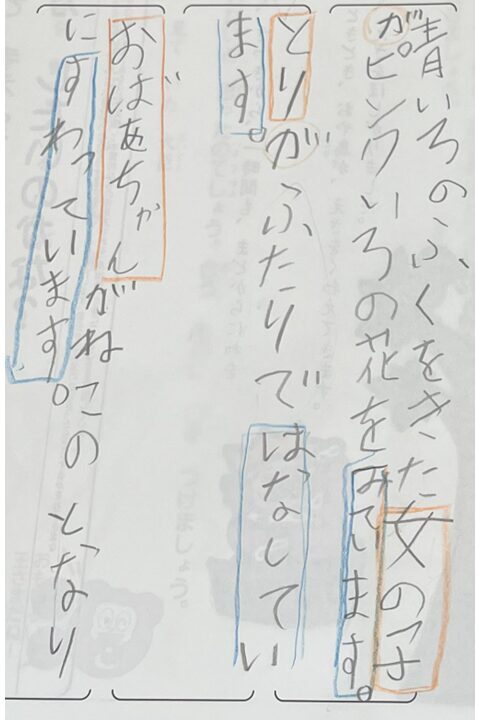 晴いろのふくをきた女の子
がピンクいろの花をみています。
とりがふたりではなしてい
ます。
おばあちゃんがねこのとなり
にすわっています。